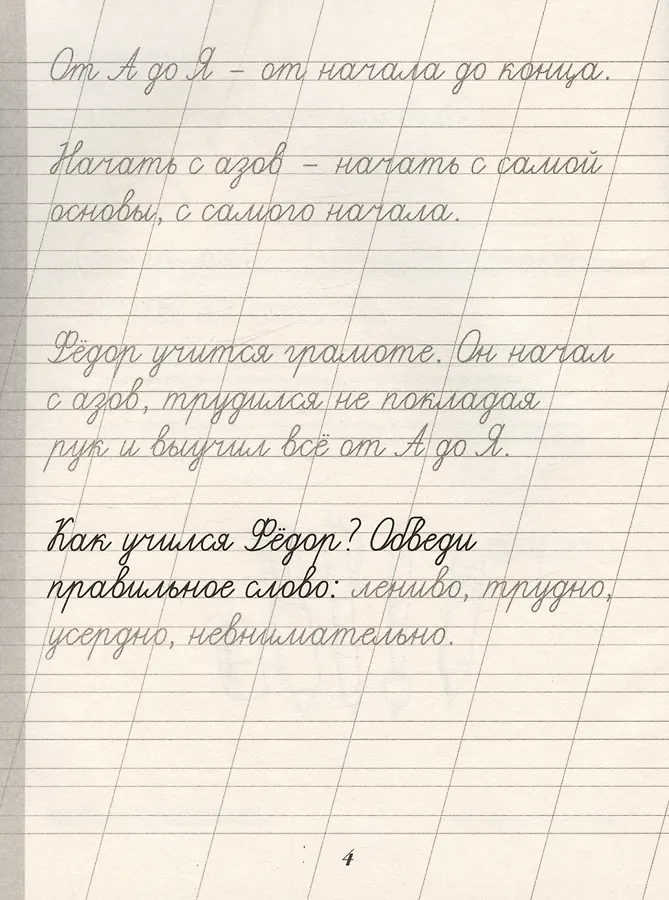 От А до Я – от начала до конца.
Начать с азов – начать с самой
основы, с самого начала.
Фёдор учится грамоте. Он начал
с азов, трудился не покладая
рук и выучил всё от А до Я.
Как учился Фёдор? Обведи
правильное слово: лениво, трудно,
усердно, невнимательно.
4